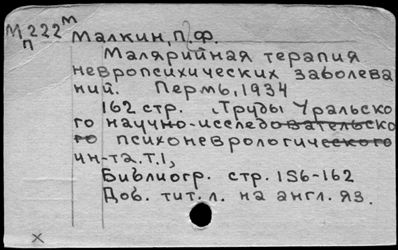 М222м Малкин, П.Ф.
п
Малярийная терапия
невропсихических заболева
ний. Пермь, 1934
162 стр. (Труды Уральско
го научно-исследовательско
го психоневрологического
ин-та. Т.1,
Библиогр. стр. 156-162
Доб. тит. л. на англ. яз.
x